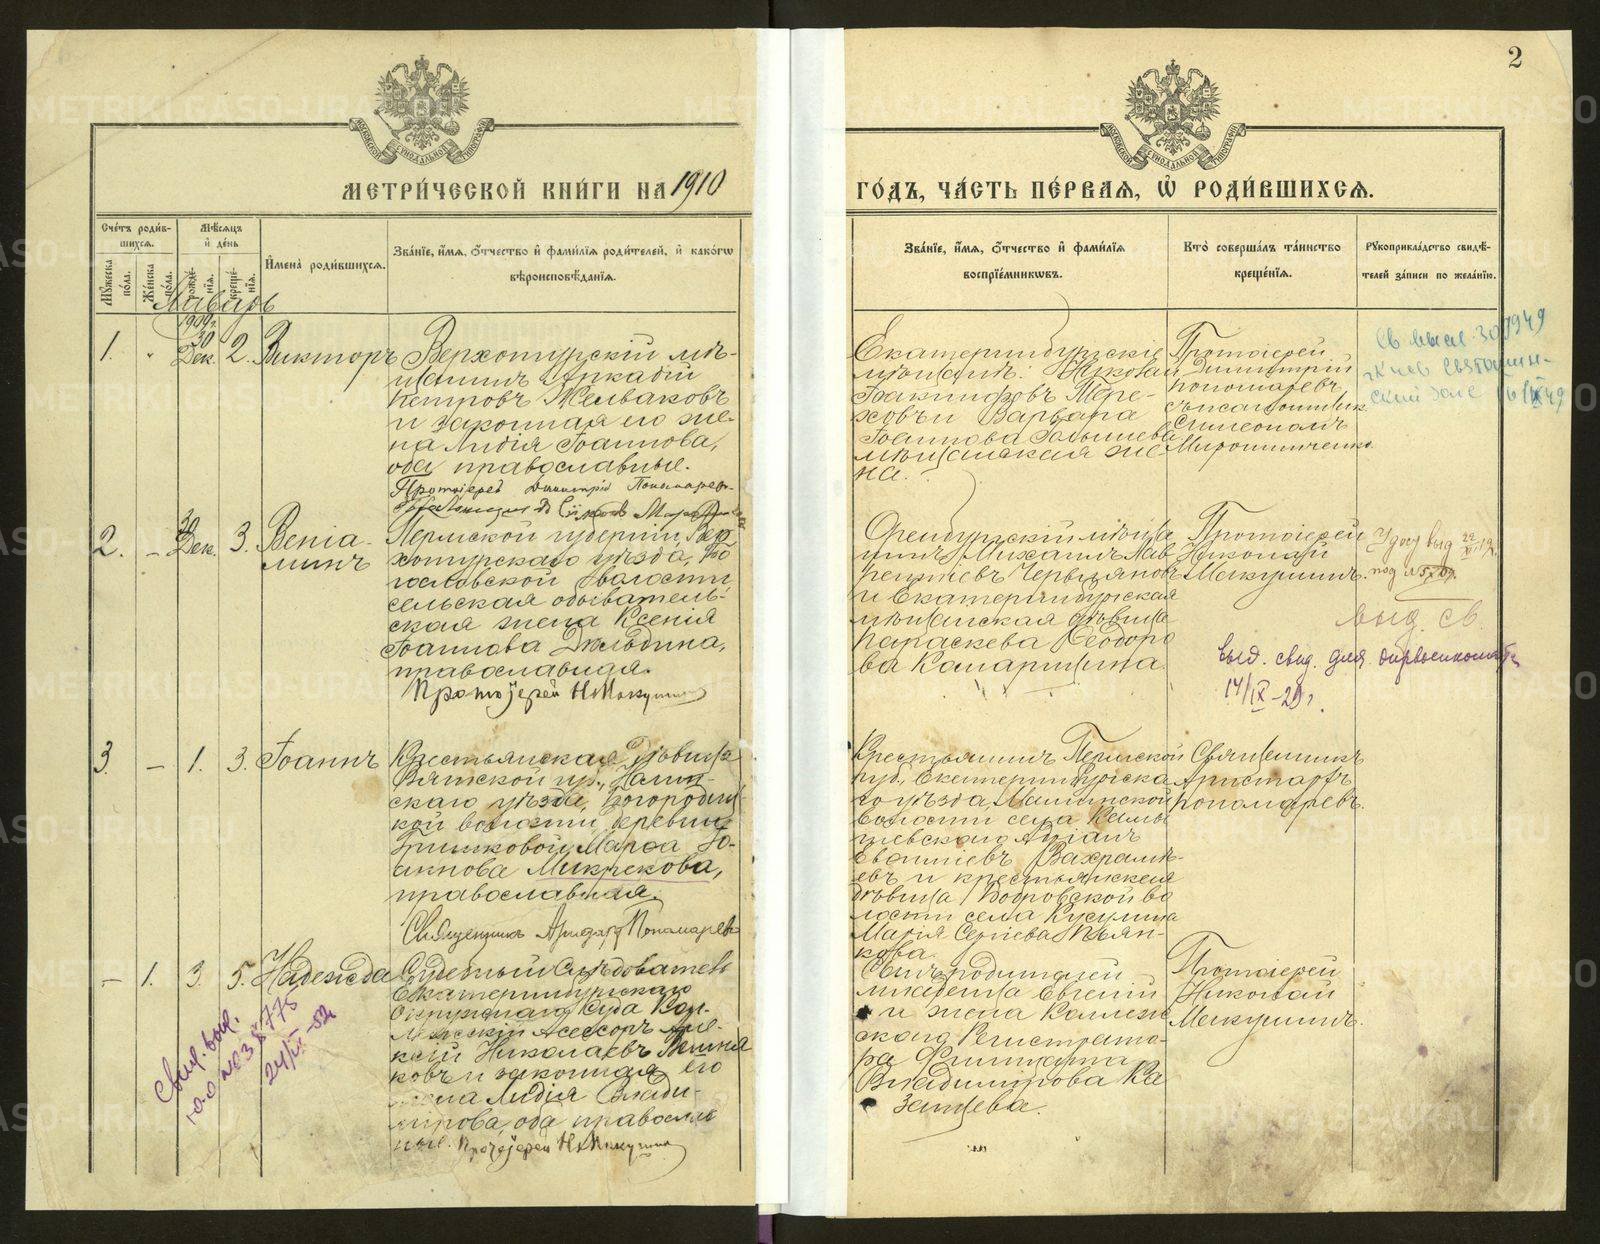 2
МЕТРИ́ЧЕСКОЙ КНИ́ГИ НА 1910
ГО́ДЪ, ЧА́СТЬ ПЕ́РВАЯ, Ѡ РОДИ́ВШИХСЯ.
Сче́тъ роди́в-
шихся.
Мѣсяцъ
и де́нь
Му́жеска по́ла.
Же́нска по́ла.
рожде́-
нія.
креще́-
нія.
Имена̀ роди́вшихся.
Зва́ніе, и́мя, о́тчество и фами́лія роди́телей, и како́гѡ
вѣроисповѣ́данія.
Зва́ніе, и́мя, о́тчество и фами́лія
воспріе́мниковъ.
Кто̀ соверша́лъ та́инство
креще́нія.
Рукоприкла́дство свидѣ́-
телей за́писи по жела́нію.
Январь
1909 г.
1. " 30 Дек. 2. Викторъ
Верхотурскій мѣ-
щанинъ Аркадій
Петровъ Желваковъ
и законная его же-
на Лидія Іоаннова,
оба православные.
Протоіерей Димитрій Пономарев
Екатеринбургскіе
мѣщане:
Варвара
Іоаннова
мѣщанская же
на.
Протоіерей
Димитрій
Пономаревъ
съ псаломщик.
Симеономъ
Мирошниченко
2. – 30 Дек. 3. Веніа-
минъ
Пермской губерніи, Вер
хотурскаго уѣзда, Бо
гословской волости
сельская обыватель-
ская жена Ксенія
Іоаннова Дильдина,
православная.
Протоіерей Н Мекушин
Оренбургскій мѣща
нинъ Михаилъ Лав
рентіевъ Червляновъ
и Екатеринбургская
мѣщанская дѣвица
Параскева Ѳеодоро
ва Капаршина.
Протоіерей
Николай
Мекушинъ.
выд. св.
выд. свид. для
14/IX-29 г.
3. – 1. 3. Іоаннъ
Крестьянская дѣвица
Вятской губ., Нолин-
скаго уѣзда, Богородиц
кой волости деревни
Гришковой Марѳа Іо-
аннова Микрюкова,
православная.
Священникъ Аристархъ Пономаревъ
Крестьянинъ Пермской
губ., Екатеринбургска
го уѣзда, Маминской
волости села
Адріанъ
Евѳиміевъ Вахрамѣ-
евъ и крестьянская
дѣвица Бобровской во
лости села
Марія Сергіева Пьян-
кова.
Священникъ
Аристархъ
Пономаревъ.
– 1. 3. 5. Надежда
Судебный Слѣдователь
Екатеринбургскаго
Окружнаго Суда Кол-
лежскій Асессоръ Але-
ксѣй Николаевъ
ковъ и законная его
жена Лидія Влади-
мірова, оба православ
ные. Протоіерей Н Мекушин
Сынъ родителей
младенца Евгеній
и жена Коллеж
скаго Регистрато-
ра Филицата
Владимірова Ка
занцева.
Протоіерей
Николай
Мекушинъ.
свид. выд.
24/IX-52